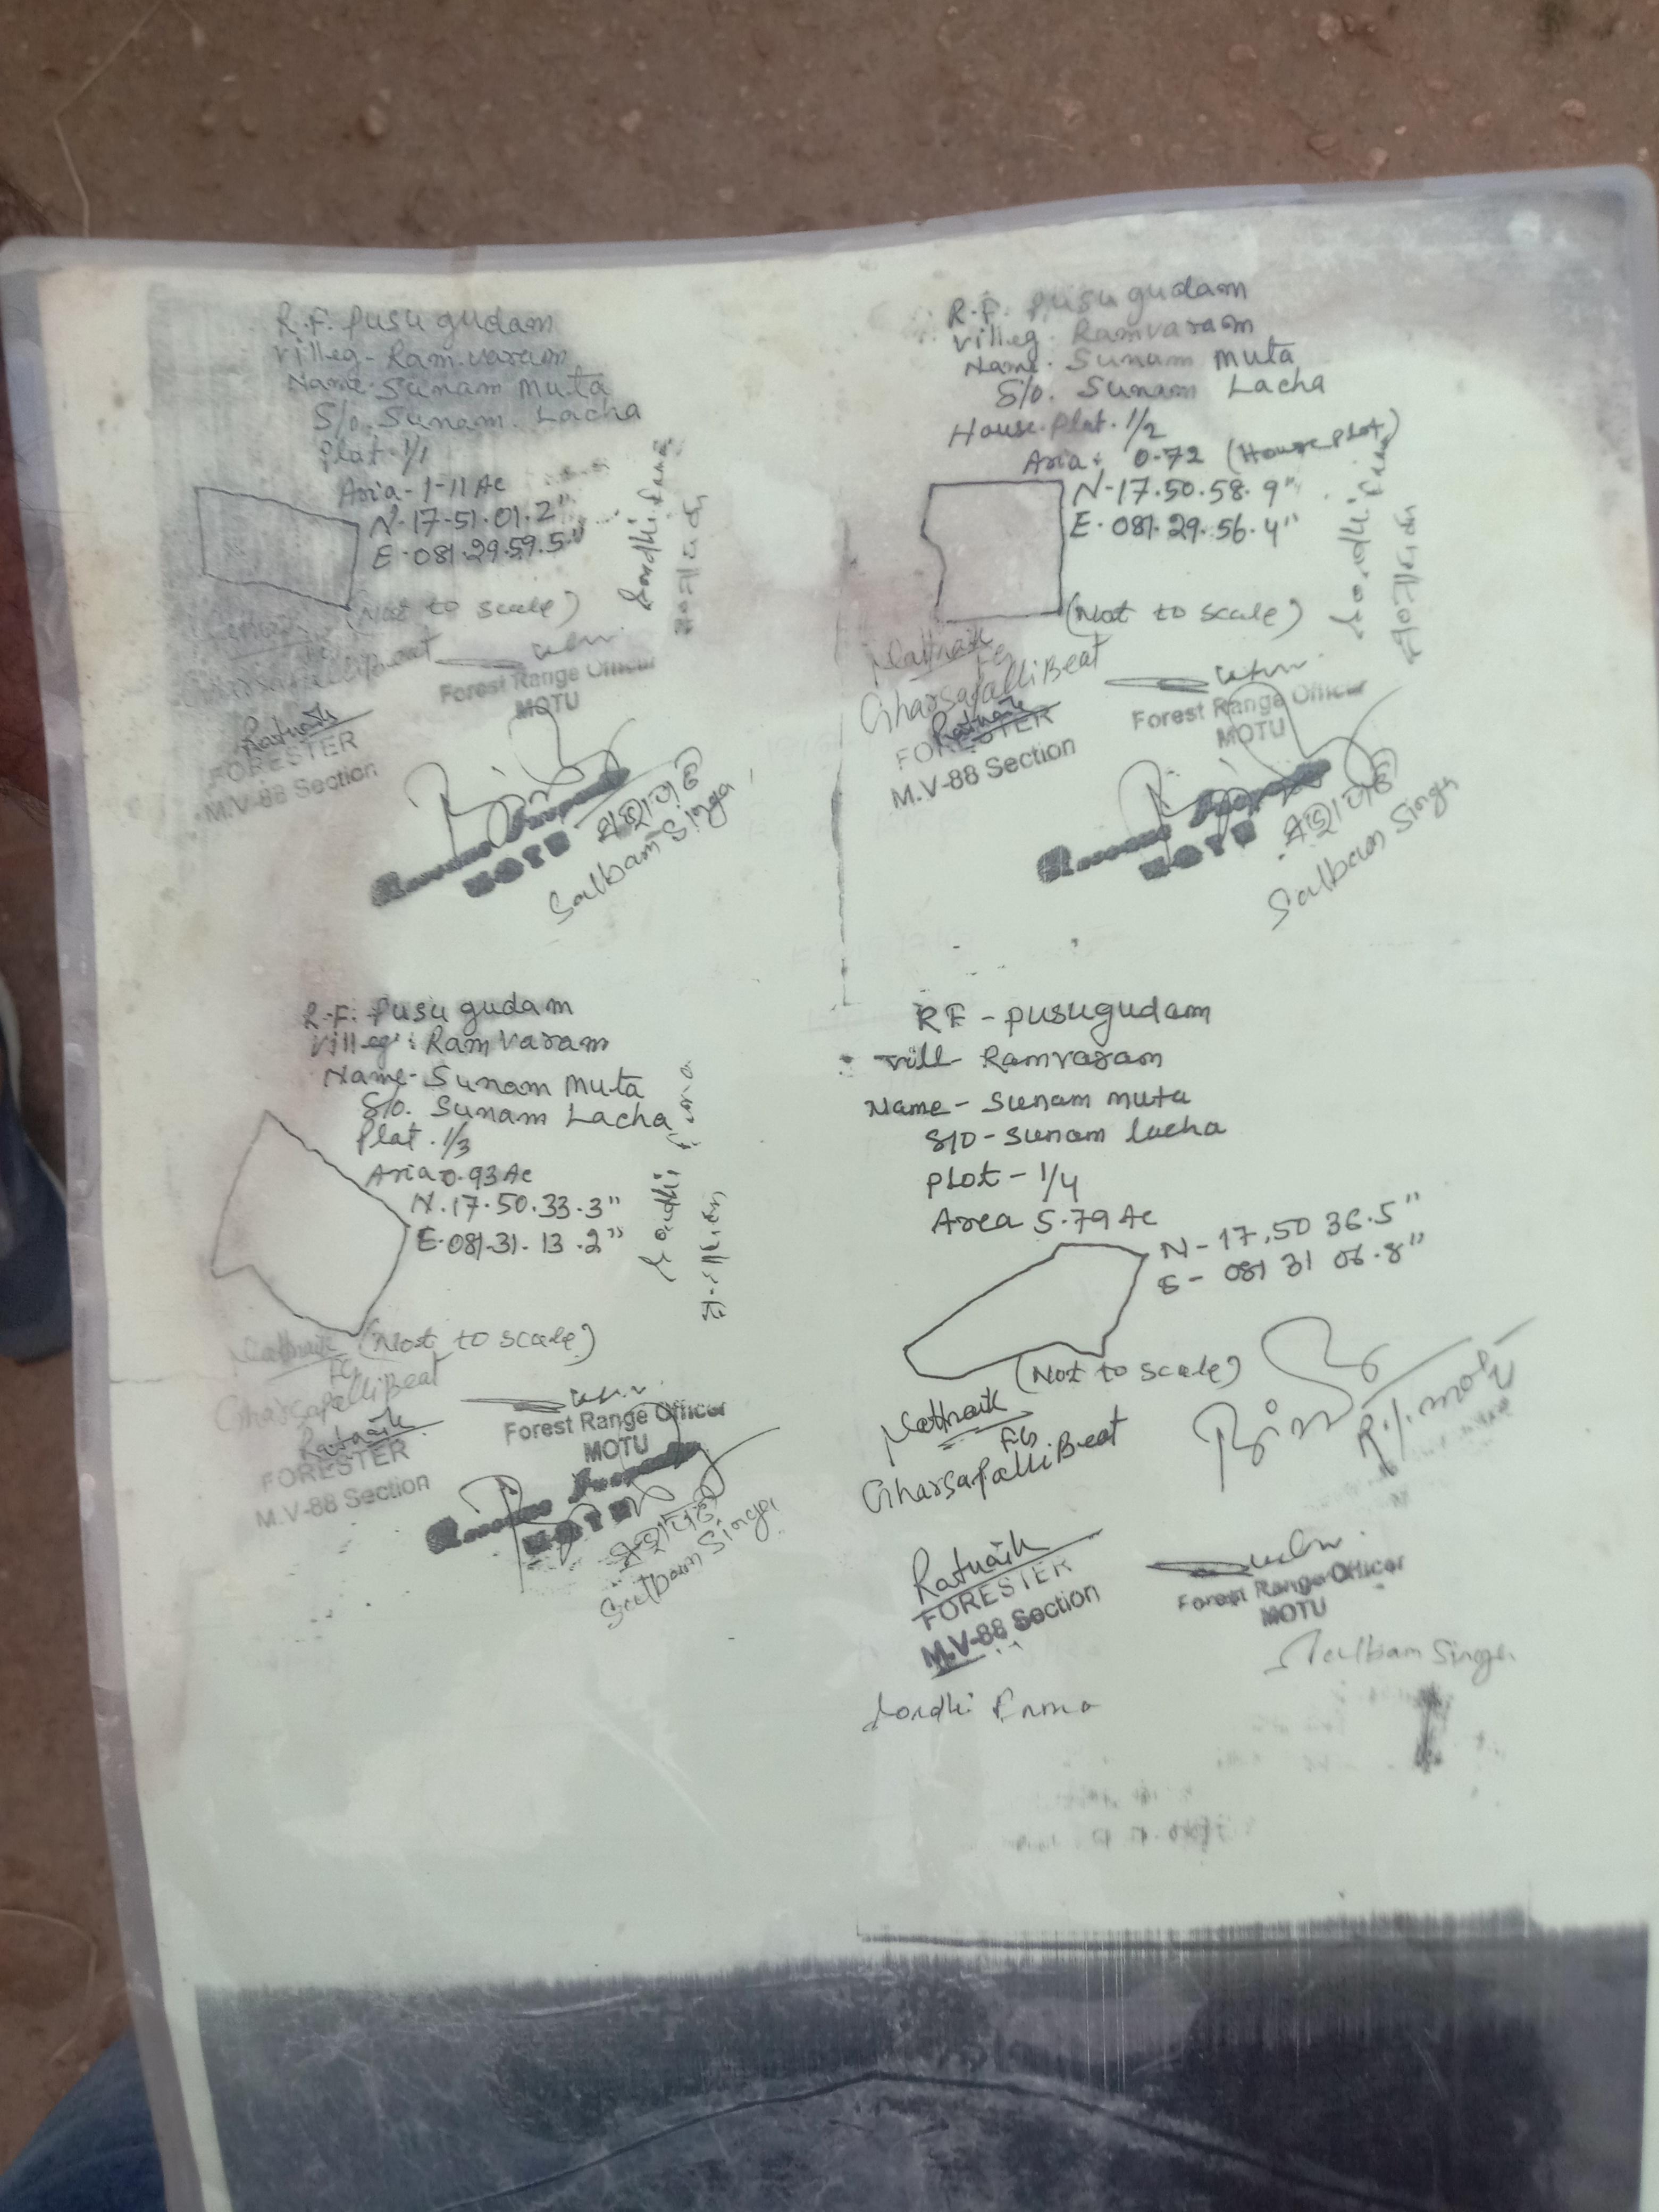 R.F. Pusu gudam
Villeg - Ram.varam
Name. Sunam Muta
S/o. Sunam. Lacha
Plat. 1/1
Aria - 1-11 Ac
N-17-51.01.2"
E-081.29.59.5"
(Not to scale)
GharsapalliBeat
Ratnaik
FORESTER
M.V-88 Section
Forest Range Officer
MOTU
MOTU
Salbam Singa
R.F. Pusu gudam
Villeg. Ramvaram
Name. Sunam Muta
S/o. Sunam Lacha
House.Plat. 1/2
Aria: 0.72 (House plot)
N-17.50.58.9"
E.081.29.56.4"
(Not to scale)
Nattnaik
FG
GharsapalliBeat
Ratnaik
FORESTER
M.V-88 Section
Forest Range Officer
MOTU
MOTU
Salbam Singh
R.F. Pusu gudam
Villeg: Ram Varam
Name-Sunam Muta
S/o. Sunam Lacha
Plat. 1/3
Aria 0.93 Ac
N.17.50.33.3"
E.081.31.13.2"
(Not to scale)
Nattnaik
FG
GharsapalliBeat
Ratnaik
FORESTER
M.V-88 Section
Forest Range Officer
MOTU
MOTU
Salbam Singa
RF - pusugudam
vill- Ramvaram
Name - Sunam muta
S/O - sunam lacha
plot - 1/4
Area 5.79 Ac
N - 17.50 36.5"
E - 081 31 06.8"
(Not to scale)
Nattnaik
FG
GharsapalliBeat
R.I. Motu
Ratnaik
FORESTER
M.V-88 Section
Forest Range Officer
MOTU
Salbam Singh